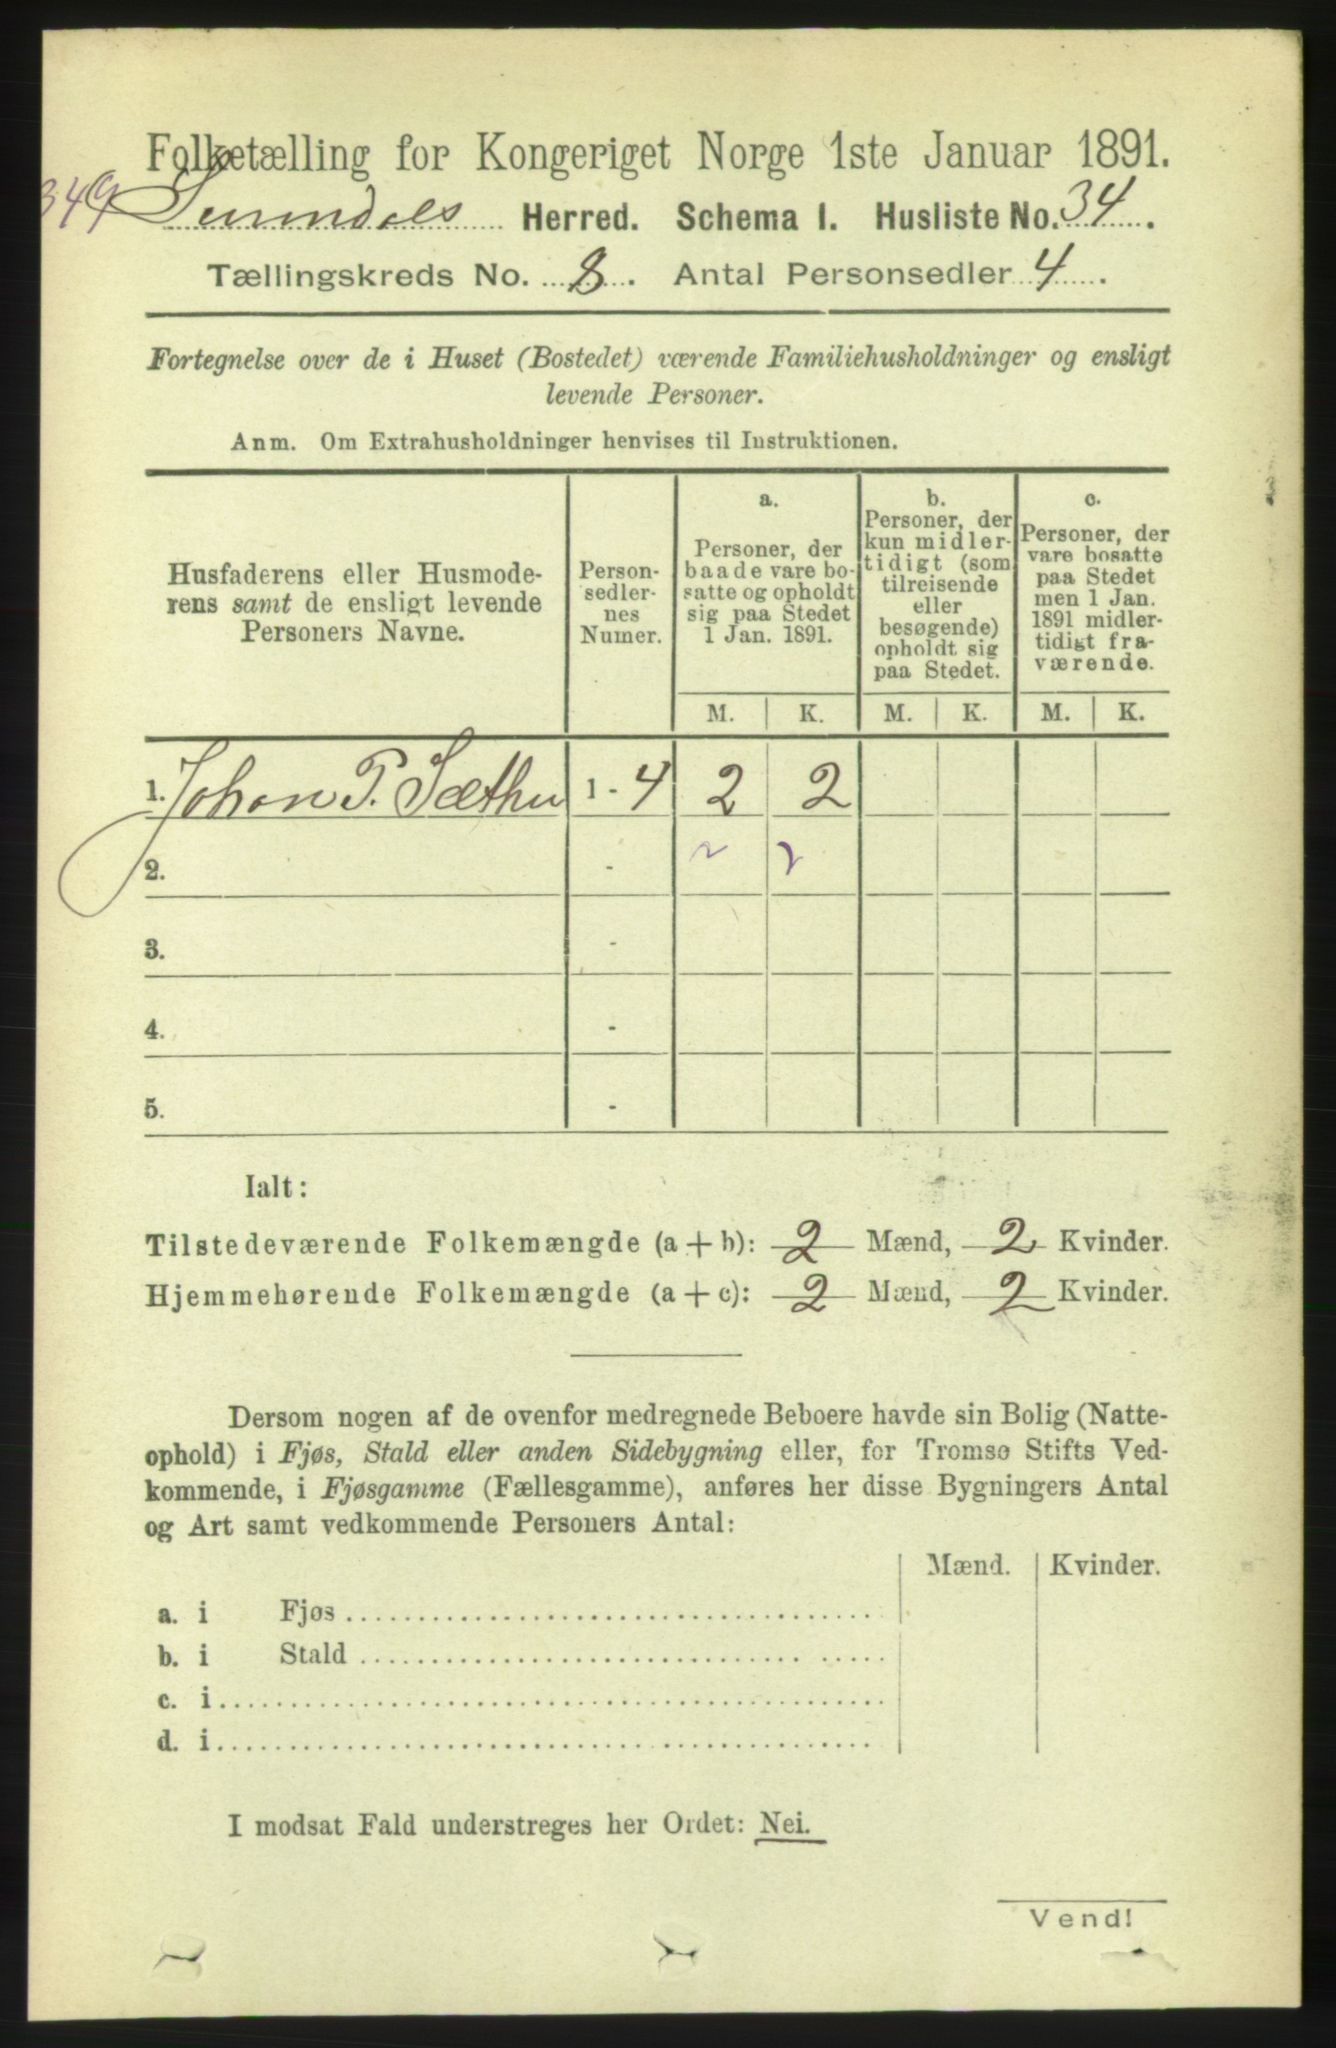 Folketælling for Kongeriget Norge 1ste Januar 1891.
349 Herred. Schema I. Husliste No. 34.
Tællingskreds No. 8. Antal Personsedler 4.
Fortegnelse over de i Huset (Bostedet) værende Familiehusholdninger og ensligt
levende Personer.
Anm. Om Extrahusholdninger henvises til Instruktionen.
Husfaderens eller Husmode-
rens samt de ensligt levende
Personers Navne.
Person-
sedler-
nes
Numer.
a.
Personer, der
baade vare bo-
satte og opholdt
sig paa Stedet
1 Jan. 1891.
b.
Personer, der
kun midler-
tidigt (som
tilreisende
eller
besøgende)
opholdt sig
paa Stedet.
c.
Personer, der
vare bosatte
paa Stedet
men 1 Jan.
1891 midler-
tidigt fra-
værende.
M. K. M. K. M. K.
1. Johan P. Sæther 1 - 4 2 2
2. - 2 2
3. -
4. -
5. -
Ialt:
Tilstedeværende Folkemængde (a + b): 2 Mænd, 2 Kvinder.
Hjemmehørende Folkemængde (a + c): 2 Mænd, 2 Kvinder.
Dersom nogen af de ovenfor medregnede Beboere havde sin Bolig (Natte-
ophold) i Fjøs, Stald eller anden Sidebygning eller, for Tromsø Stifts Ved-
kommende, i Fjøsgamme (Fællesgamme), anføres her disse Bygningers Antal
og Art samt vedkommende Personers Antal:
Mænd. Kvinder.
a. i Fjøs
b. i Stald
c. i
d. i
I modsat Fald understreges her Ordet: Nei.
Vend!